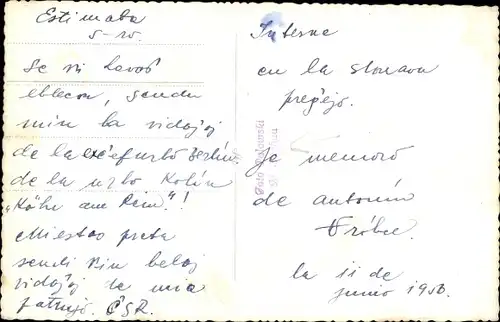 Estimata
s-ro.
Se vi havos
eblecon, sendu
min la vidaĵoj
de la ĉefurbo Berlin,
de la urbo Kolín
"Köln am Rein"!
Mi estas preta
sendi Vin belaj
vidaĵoj de mia
patrujo. ČSR.
Interne
en la
preĝejo.
Je memoro
de Antonín
la 11 de
junio 1950.
Foto